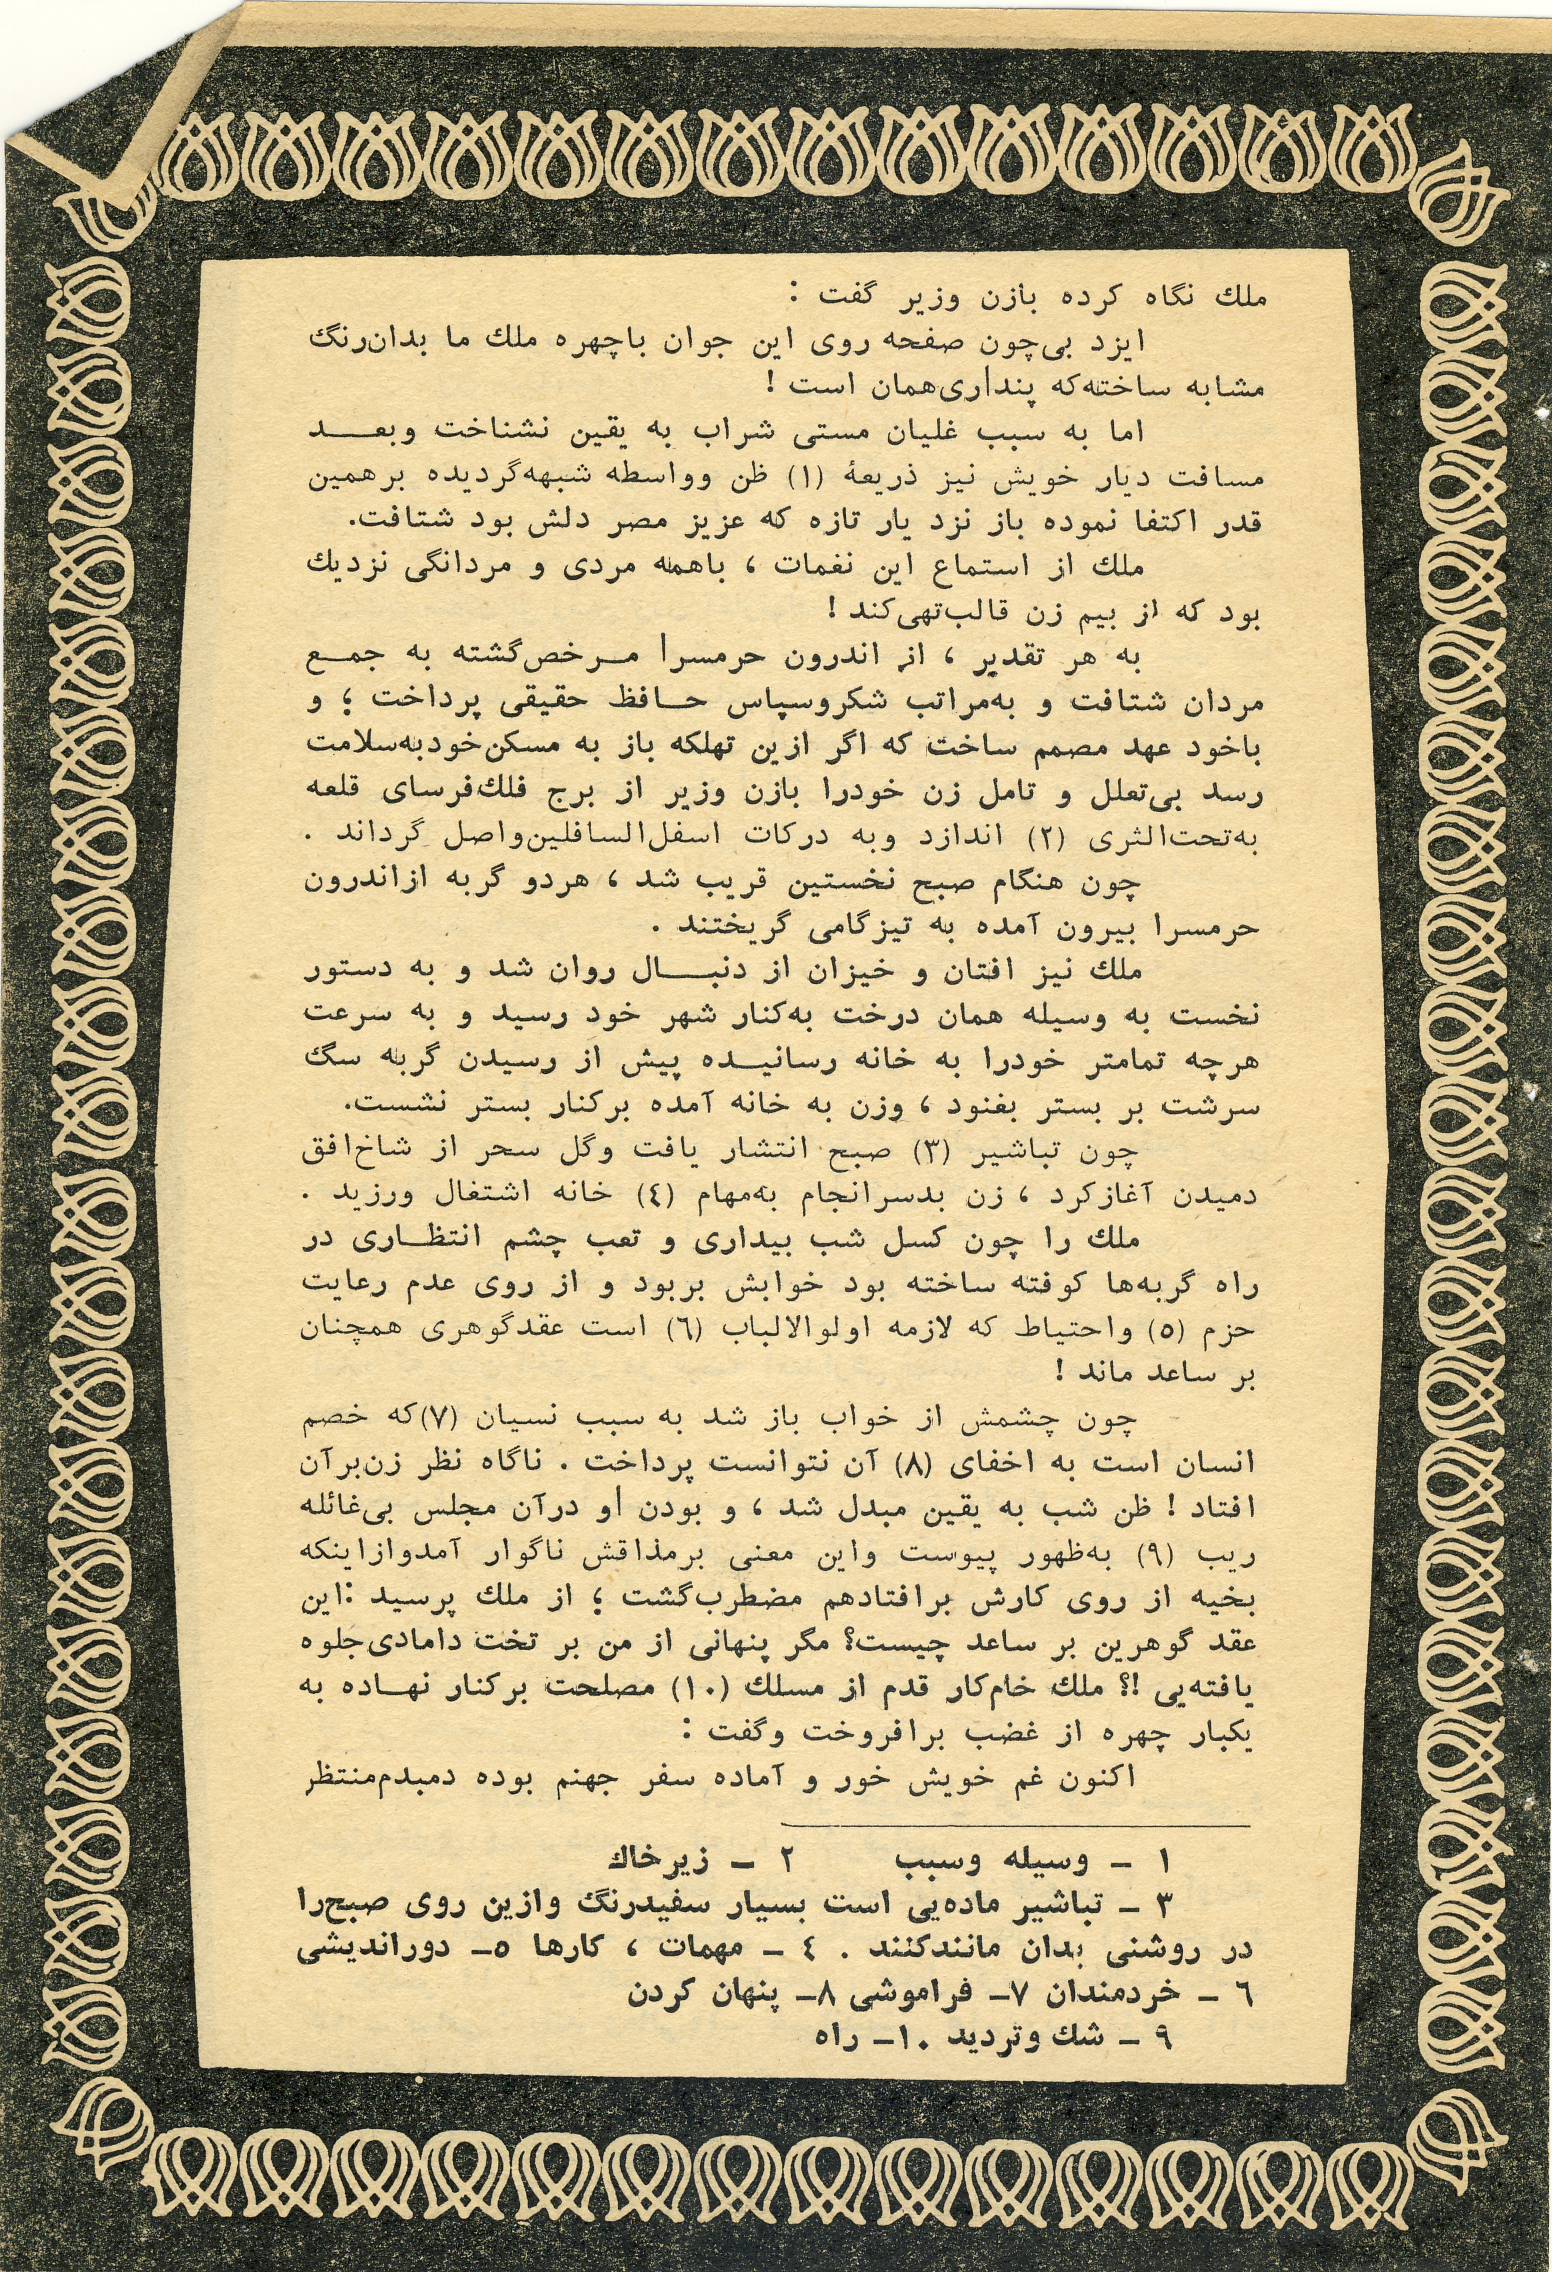 ملك نگاه كرده بازن وزير گفت :
ايزد بی‌چون صفحه روی اين جوان باچهره ملك ما بدان‌رنگ
مشابه ساخته‌كه پنداری‌همان است !
اما به سبب غليان مستی شراب به يقين نشناخت وبعـــد
مسافت ديار خويش نيز ذريعهٔ (۱) ظن وواسطه شبهه‌گرديده برهمين
قدر اكتفا نموده باز نزد يار تازه كه عزيز مصر دلش بود شتافت.
ملك از استماع اين نغمات ، باهمه مردی و مردانگی نزديك
بود كه از بيم زن قالب‌تهی‌كند !
به هر تقدير ، از اندرون حرمسرا مـرخص‌گشته به جمـع
مردان شتافت و به‌مراتب شكروسپاس حـافظ حقيقی پرداخت ؛ و
باخود عهد مصمم ساخت كه اگر ازين تهلكه باز به مسكن‌خودبه‌سلامت
رسد بی‌تعلل و تامل زن خودرا بازن وزير از برج فلك‌فرسای قلعه
به‌تحت‌الثری (۲) اندازد وبه دركات اسفل‌السافلين‌واصل گرداند .
چون هنگام صبح نخستين قريب شد ، هردو گربه ازاندرون
حرمسرا بيرون آمده به تيزگامی گريختند .
ملك نيز افتان و خيزان از دنبــال روان شد و به دستور
نخست به وسيله همان درخت به‌كنار شهر خود رسيد و به سرعت
هرچه تمامتر خودرا به خانه رسانيـده پيش از رسيدن گربه سگ
سرشت بر بستر بغنود ، وزن به خانه آمده بركنار بستر نشست.
چون تباشير (۳) صبح انتشار يافت وگل سحر از شاخ‌افق
دميدن آغازكرد ، زن بدسرانجام به‌مهام (٤) خانه اشتغال ورزيد .
ملك را چون كسل شب بيداری و تعب چشم انتظـاری در
راه گربه‌ها كوفته ساخته بود خوابش بربود و از روی عدم رعايت
حزم (٥) واحتياط كه لازمه اولوالالباب (٦) است عقدگوهری همچنان
بر ساعد ماند !
چون چشمش از خواب باز شد به سبب نسيان (۷)كه خصم
انسان است به اخفای (۸) آن نتوانست پرداخت . ناگاه نظر زن‌برآن
افتاد ! ظن شب به يقين مبدل شد ، و بودن او درآن مجلس بی‌غائله
ريب (۹) به‌ظهور پيوست واين معنی برمذاقش ناگوار آمدوازاينكه
بخيه از روی كارش برافتادهم مضطرب‌گشت ؛ از ملك پرسيد :اين
عقد گوهرين بر ساعد چيست؟ مگر پنهانی از من بر تخت دامادی‌جلوه
يافته‌يی !؟ ملك خام‌كار قدم از مسلك (۱۰) مصلحت بركنار نهـاده به
يكبار چهره از غضب برافروخت وگفت :
اكنون غم خويش خور و آماده سفر جهنم بوده دمبدم‌منتظر
۱ ـ وسيله وسبب ۲ ـ زيرخاك
۳ ـ تباشير ماده‌يی است بسيار سفيدرنگ وازين روی صبح‌را
در روشنی بدان مانندكنند . ٤ ـ مهمات ، كارها ٥ـ دورانديشی
٦ ـ خردمندان ۷ـ فراموشی ۸ـ پنهان كردن
۹ ـ شك وترديد ۱۰ـ راه